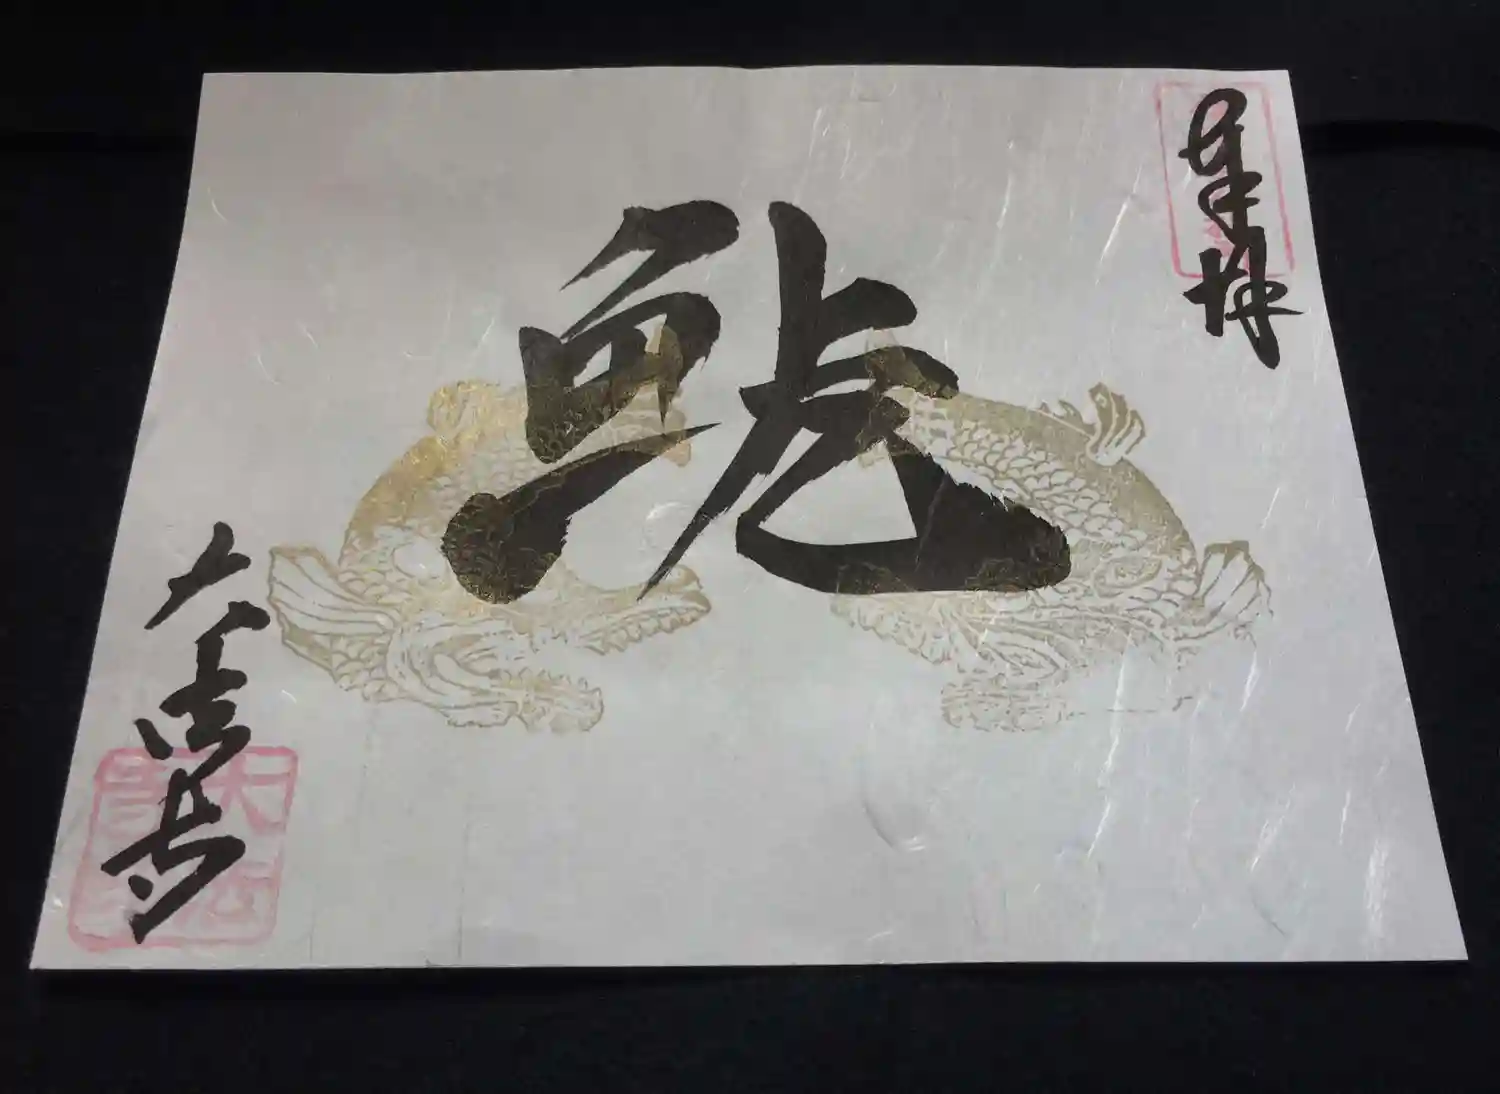 奉拝
鯱
大法寺